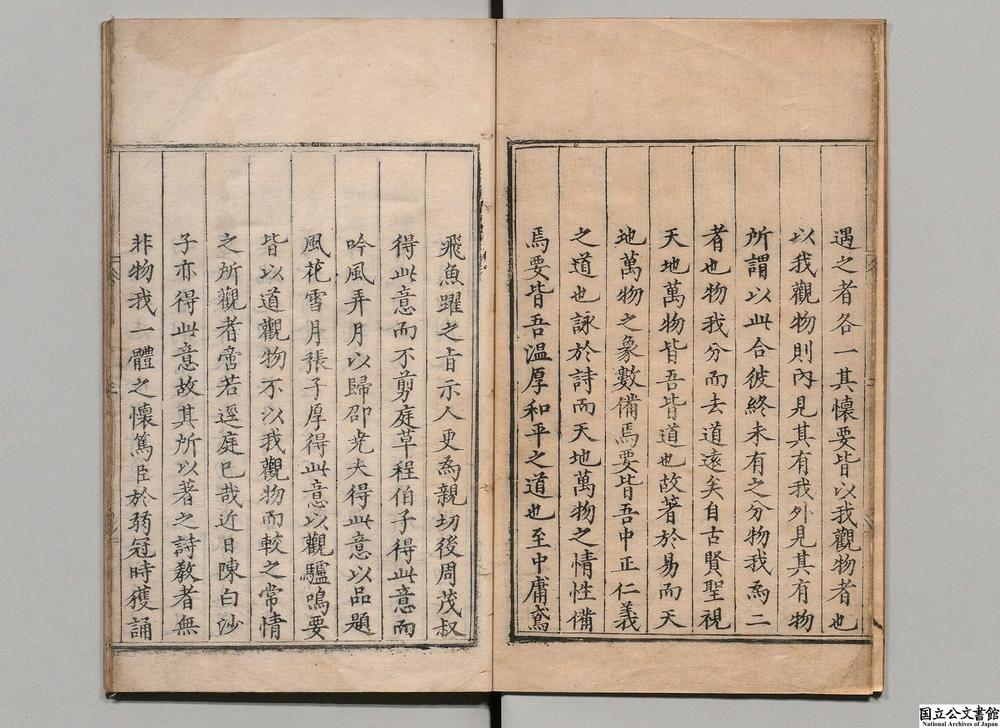 遇之者各一其懷要皆以我觀物者也
以我觀物則內見其有我外見其有物
所謂以此合彼終未有之分物我爲二
者也物我分而去道遠矣自古賢聖視
天地萬物皆吾皆道也故著於易而天
地萬物之象數備焉要皆吾中正仁義
之道也詠於詩而天地萬物之情性備
焉要皆吾溫厚和平之道也至中庸鳶
飛魚躍之旨示人更爲親切後周茂叔
得此意而不剪庭草程伯子得此意而
吟風弄月以歸邵堯夫得此意以品題
風花雪月張子厚得此意以觀驢鳴要
皆以道觀物不以我觀物而較之常情
之所觀者啻若逕庭已哉近日陳白沙
子亦得此意故其所以著之詩教者無
非物我一體之懷篤臣於弱冠時獲誦
国立公文書館
National Archives of Japan